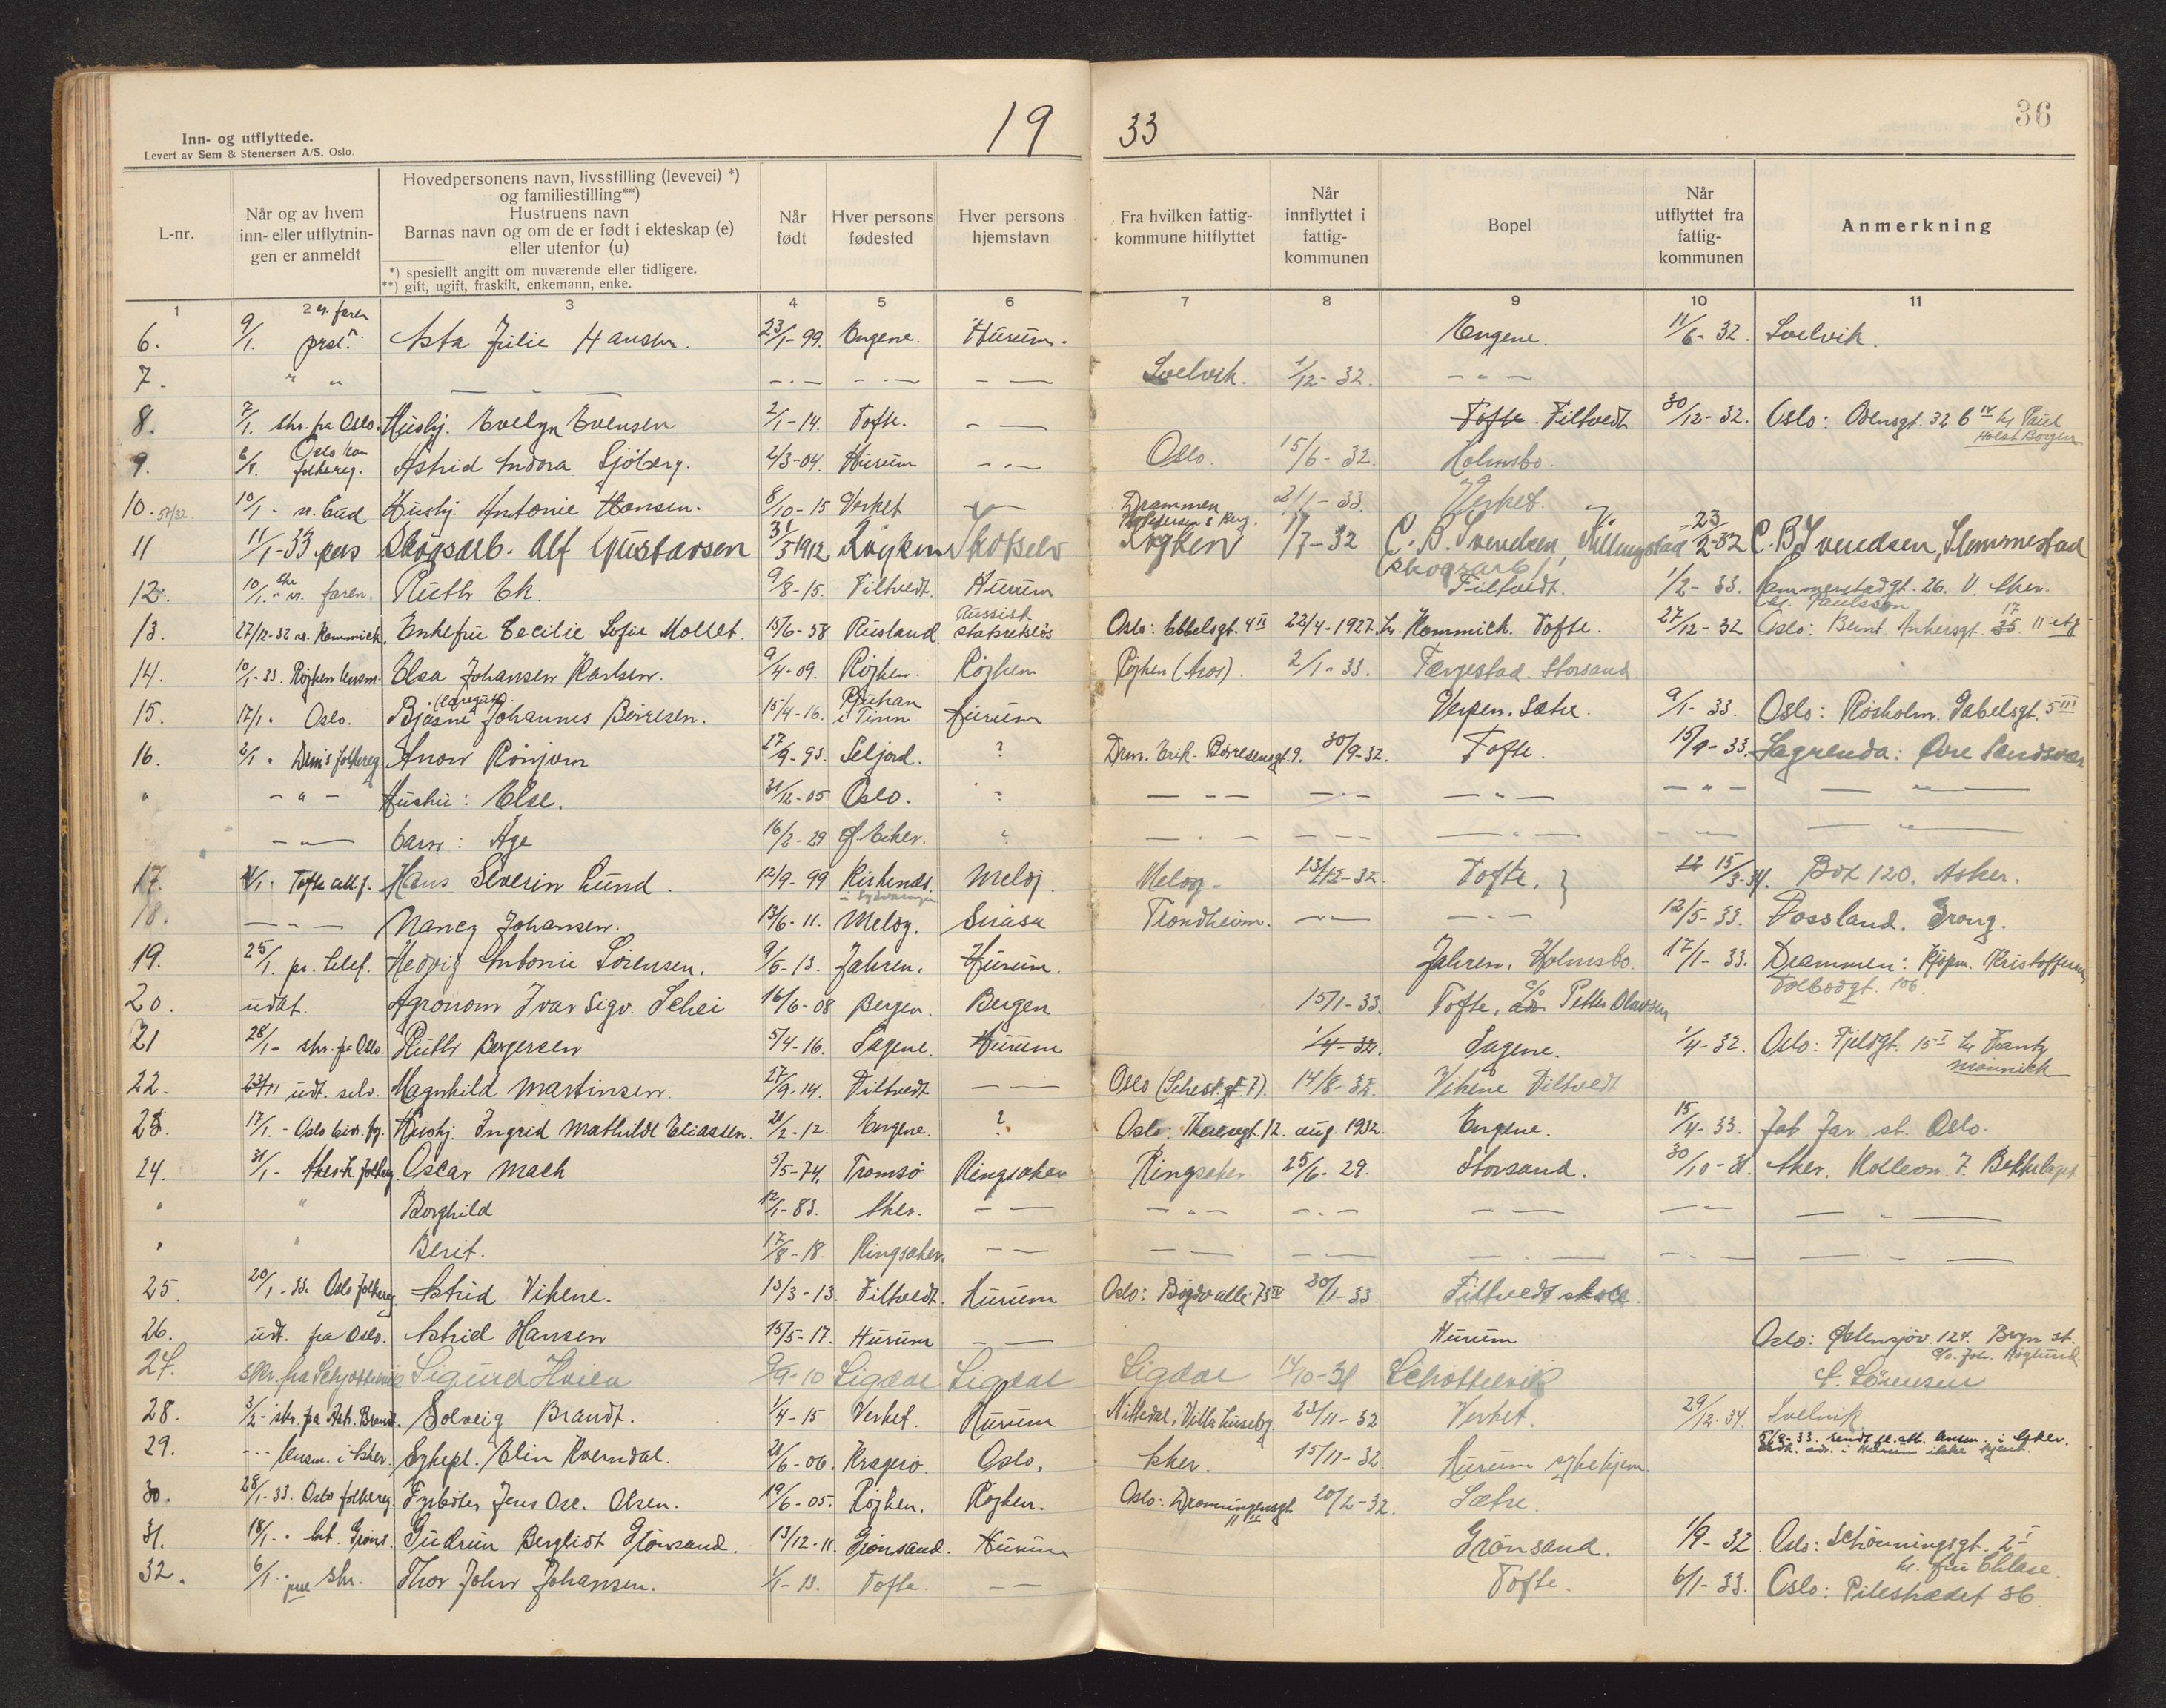 19 33
36
Inn- og utflyttede.
Levert av Sem & Stenersen A/S. Oslo.
L-nr.
Når og av hvem inn- eller utflytnin- gen er anmeldt
Hovedpersonens navn, livsstilling (levevei) *)
og familiestilling**)
Hustruens navn
Barnas navn og om de er født i ekteskap (e)
eller utenfor (u)
*) spesiellt angitt om nuværende eller tidligere.
**) gift, ugift, fraskilt, enkemann, enke.
Når født
Hver persons fødested
Hver persons hjemstavn
Fra hvilken fattig- kommune hitflyttet
Når innflyttet i fattig- kommunen
Bopel
Når utflyttet fra fattig- kommunen
Anmerkning
1 2 3 4 5 6 7 8 9 10 11
6. 9/1. faren Asta Julie Hansen. 23/1-99. Engene. Hurum. Engene. 11/6-32. Svelvik.
7. " " — - — - — — — Svelvik. 1/12-32. — " —
8. 7/1. skr. fra Oslo. Hushj. Evelyn Evensen 2/1-14. Tofte. — — Tofte. Filtvedt 30/12-32. Oslo: Odensgt. 32 b IV Paul Holst
9. Oslo folkereg. Astrid Andora Sjöberg. 2/3-04. Hurum — — Oslo. 15/6-32. Holmsbo.
10. 57/32 10/1- v. bud Hushj. Antonie Hansen. 8/10-15 Verket — Drammen 2/1-33. Verket.
11 11/1-33 pers Skogsarb. Alf Gustavsen 31/3-1912 Røyken Skotselv Røyken 1/7-32 C. B. Svendsen, (skogsarb) 23/2-32 C. B Svendsen, Slemmestad
12. 10/1. v. faren. Ruth Ek. 9/8-15. Filtvedt. Hurum Filtvedt. 1/2-33. 26. V. Aker. Paulsson
13. 27/12-32 Enkefru Cecilie Sofie Mollet. 15/6-58 Rusland Russisk statsretsløs Oslo: Ebbelsgt. 4 II 22/4-1927. Tofte. 27/12-32 Oslo: Bernt Ankersgt. 17 II etg
14. 10/1-33. Røyken Elsa Johansen Karlsen. 9/4-09. Røyken. Røyken Røyken (Aros). 2/1-33. Færgestad. Storsand
15. 17/1. Oslo. Bjarne Johannes Børresen. 15/4-16. Rjukan i Tinn Hurum Verpen. Sætre. 9/1-33. Oslo: Rosholm. Gabelsgt. 5 III
16. 2/1. Drm's folkereg Rönjom 27/9-93. Seljord. ? Drm. Erik Börresensgt. 9. 30/9-32. Tofte. 15/9-33. Sagrenda: Øvre Sandsvær
" — " — Hustru: Else. 31/12-05 Oslo. "
— " — barn: Åge 16/2-29 Eiker. "
17. Tofte cell.f. Hans Severin Lund. 12/9-99 Meløy Meløy 13/12-32. Tofte. } 15/3-34. Box 120. Asker.
18. — " — Nancy Johansen. 13/6-11. Meløy. Snåsa Trondheim. — " — — " — 12/5-33. Fossland. Grong.
19. 25/1. pr. telef. Hedvig Antonie Sørensen. 9/5-13. Jahren. Hurum. Jahren, Holmsbo. 17/1-33. Drammen: Kjøpm. Kristoffersen Tolbodgt. 106.
20. udat. Agronom Ivar Sigv. Schei 16/6-08 Bergen. Bergen 15/1-33. Tofte, c/o Petter Olavsen
21 28/1- skr. fra Oslo. Ruth Bergersen 5/4-16. Sagene. Hurum 1/4-32. Sagene. 1/4-32. Oslo: 15 I
22. 23/11 udt. selv. Magnhild Martinsen. 27/9-14. Filtvedt — — Oslo (Sehest.gt. 7). 14/8-32. Vikene Filtvedt
23. 17/1. - Oslo Hushj. Ingrid Mathilde Eliassen. 20/2-12. Engene. ? Oslo: Theresegt. 12. aug. 1932. Engene. 15/4-33. Oslo.
24. 31/1- folkereg. Oscar Mack 5/5-74. Tromsø Ringsaker Ringsaker 25/6-29. Storsand. 30/10-31. Aker. 7. Bekkelaget
" " Borghild 12/1-83. Aker. — —
" " Berit. 17/8-18. Ringsaker. — —
25. 20/1-33. Oslo folkereg. Astrid Vikene. 13/3-13. Filtvedt. Hurum Oslo: Bygdø allé 73 IV 20/1-33. Filtvedt skole.
26. udt. fra Oslo. Astrid Hansen 15/5-17. Hurum — — Hurum Oslo: Østensjøv. 124. Bryn st. c/o. Joh. Høglund.
27. skr. fra Sigurd 9/9-10 Sigdal Sigdal Sigdal 14/10-31 S. Sørensen
28. 3/2- skr. fra Brandt. Solveig Brandt. 1/4-15 Verket. Hurum Nittedal, Villa 23/11-32 Verket. 29/12-34. Svelvik
29. --- i Aker. Sykepl. Elin Kverndal. 20/6-06. Kragerø. Oslo. Aker. 15/11-32. Hurum sykehjem. 5/9-33. i Aker. i Hurum ikke kjent.
30. 28/1-33. Oslo folkereg. Fyrbøter Jens Osc. Olsen. 19/6-05. Røyken. Røyken. Oslo: Dronningensgt. 11 20/2-32. Sætre.
31. 18/1. Gudrun Bergliot Grønsand. 13/12-11. Grønsand. Hurum Grønsand. 1/9-32 Oslo: Schønningsgt. 2 I fru
32. 6/1. skr. Thor John Johansen. 1/1-13. Tofte. — — Tofte. 6/1-33. Oslo: Pilestrædet 36.